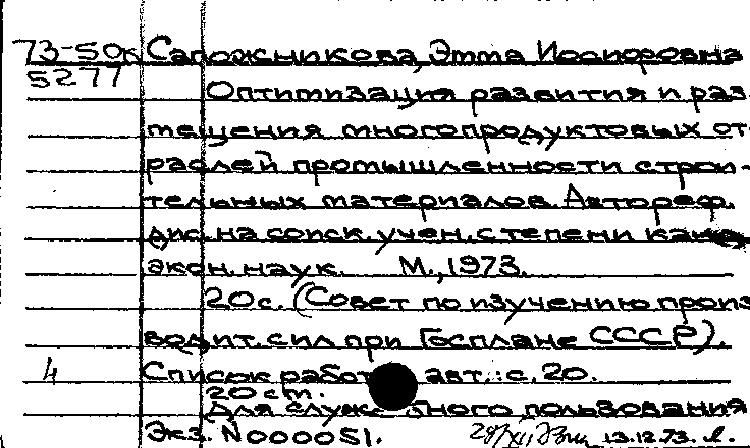 73-50к Сапожникова, Этта Иосифовна
5277
Оптимизация развития и раз-
мещения многопродуктовых от-
раслей промышленности строи-
тельных материалов. Автореф.
дис. на соиск. учен. степени канд.
экон. наук. М., 1973.
20 с. (Совет по изучению произ-
водит. сил при Госплане СССР).
4 Список работ авт.: с. 20.
20 cm.
Для служебного пользования
Экз. N000051. 13.12.73.